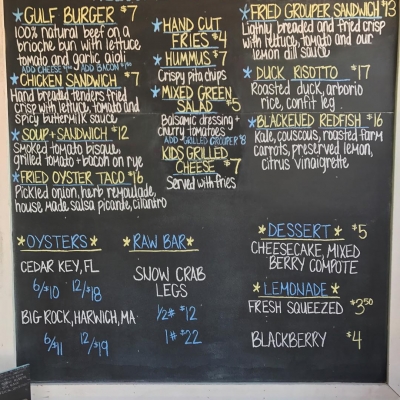 *GULF BURGER $7
100% natural beef on a
brioche bun with lettuce
tomato and garlic aioli
ADD CHEESE ADD BACON
*CHICKEN SANDWICH $7
Hand breaded tenders fried
crisp with lettuce, tomato and
spicy buttermilk sauce
*SOUP + SANDWICH $12
Smoked tomato bisque,
grilled tomato + bacon on rye
*FRIED OYSTER TACO $16
Pickled onion, herb remoulade,
house made salsa picante, cilantro
*HAND CUT
FRIES $4
*HUMMUS $7
Crispy pita chips
*MIXED GREEN
SALAD $5
Balsamic dressing +
cherry tomatoes
ADD GRILLED GROUPER $8
KIDS GRILLED
CHEESE $7
Served with fries
FRIED GROUPER SANDWICH $13
Lightly breaded and fried crisp
with lettuce, tomato and our
lemon dill sauce
*DUCK RISOTTO $17
Roasted duck, arborio
rice, confit leg
*BLACKENED REDFISH $16
Kale, couscous, roasted farm
carrots, preserved lemon,
citrus vinaigrette
*OYSTERS*
CEDAR KEY, FL
6/$10 12/$18
BIG ROCK, HARWICH, MA
6/$11 12/$19
*RAW BAR*
SNOW CRAB
LEGS
1/2# $12
1# $22
*DESSERT* $5
CHEESECAKE, MIXED
BERRY COMPOTE
*LEMONADE*
FRESH SQUEEZED $3.50
BLACKBERRY $4